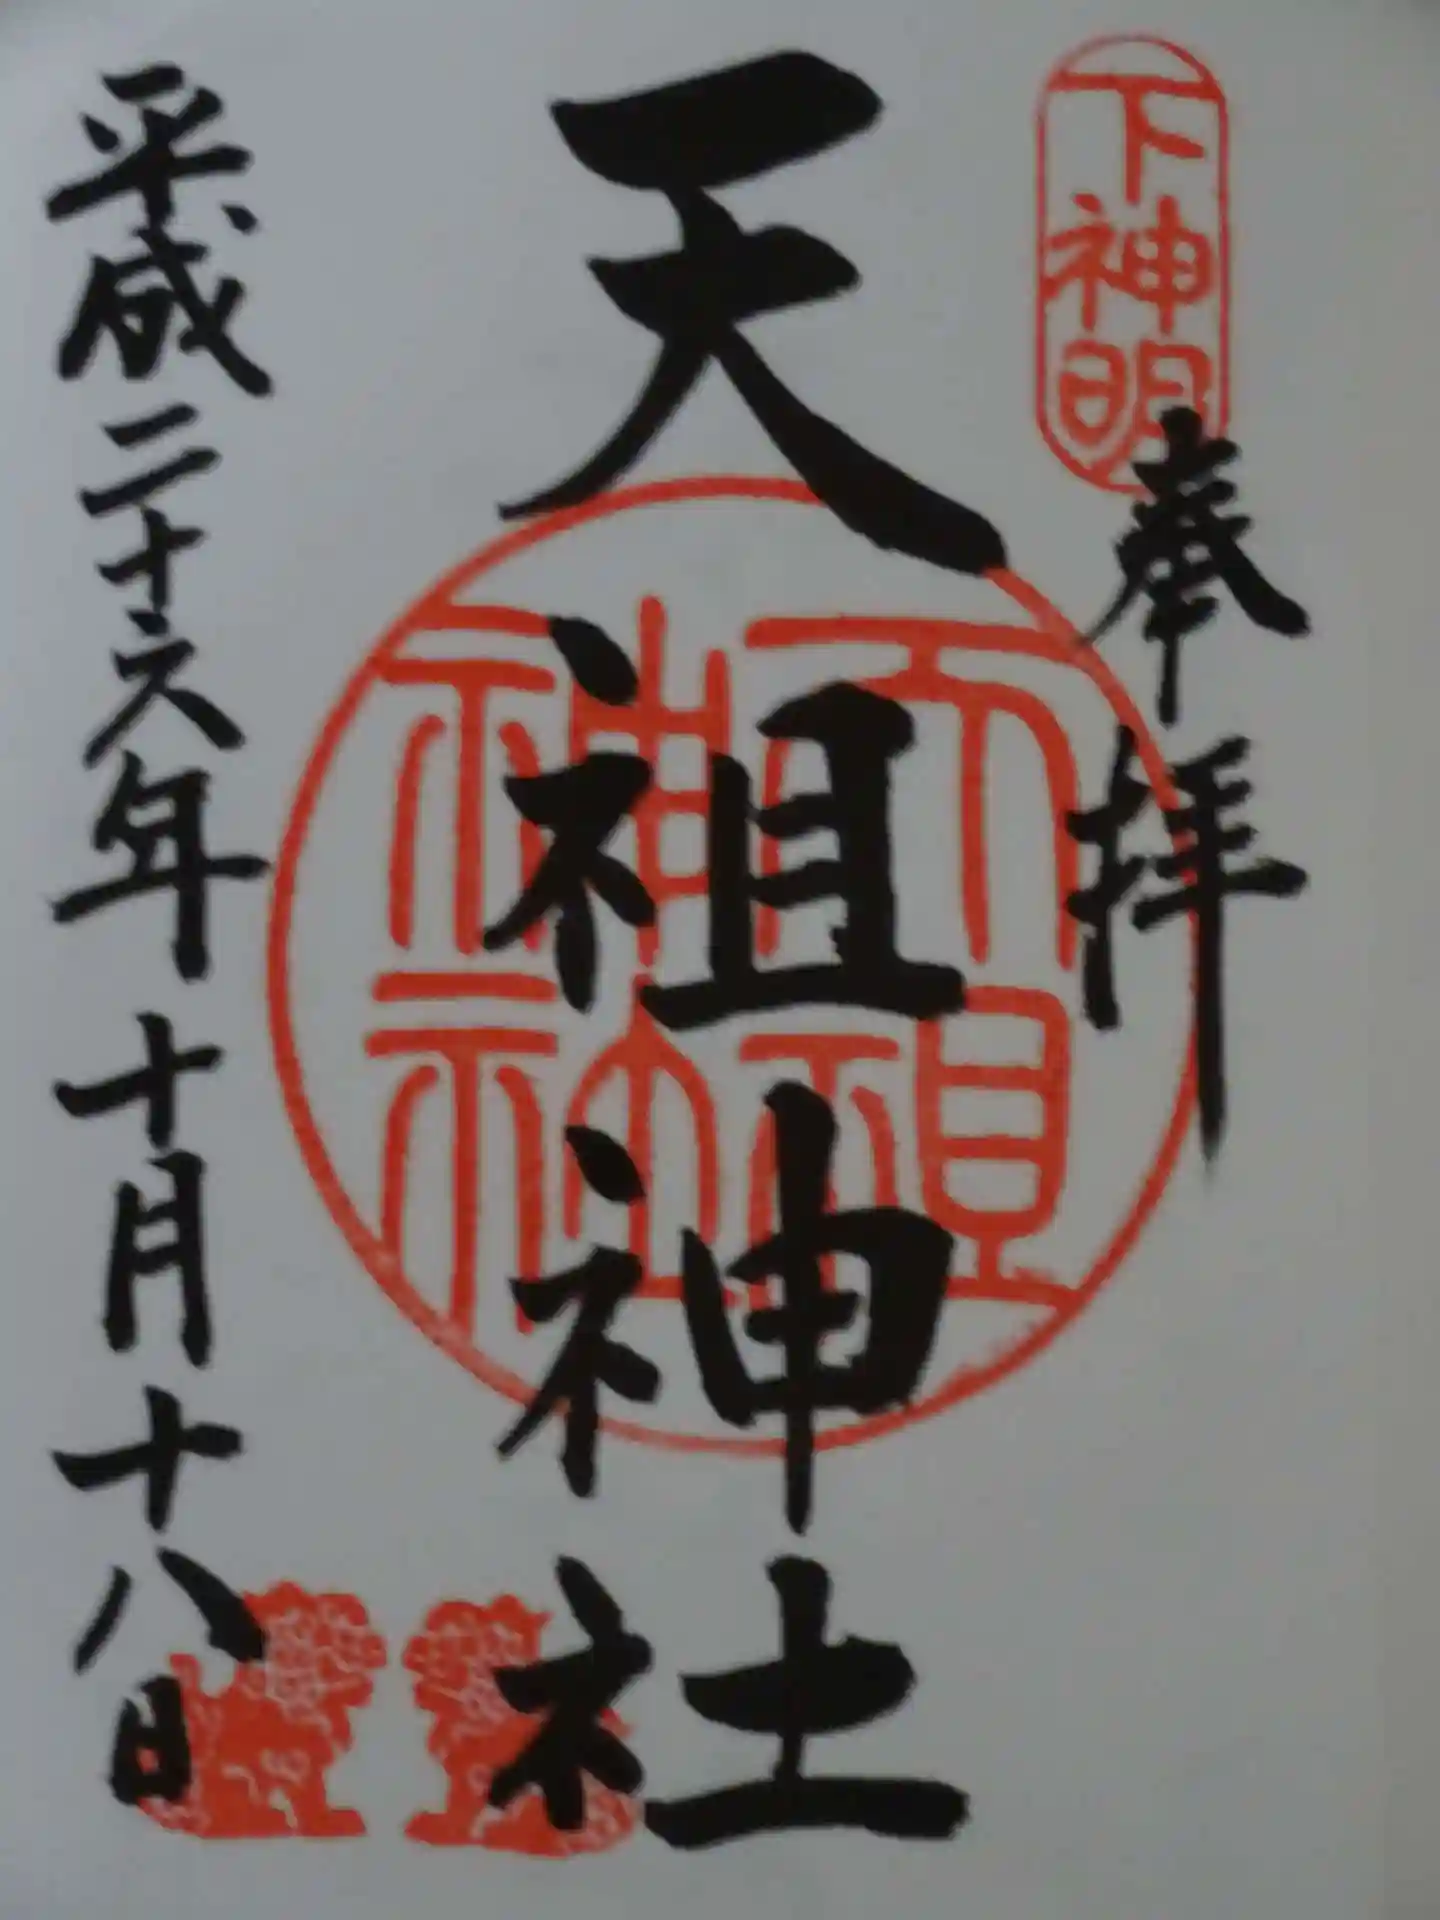 下神明
奉拝
天祖神社
天祖
神社
平成二十六年十月十八日